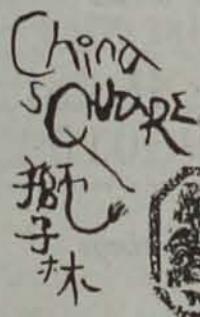 China
SQUARE
獅子林